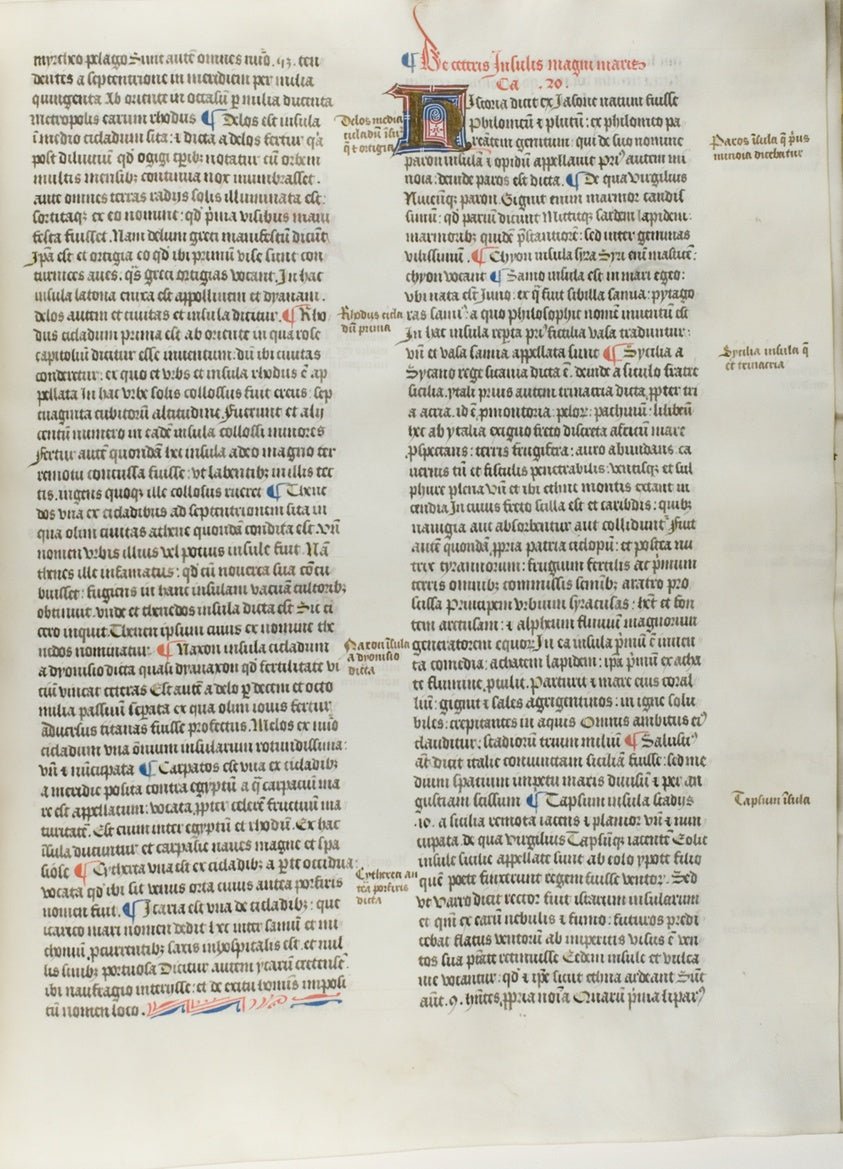 myrtheo pelago Sunt autē omnes nūo .53. ten
dentes a septentrione in meridiem per milia
quingenta Ab oriente in occasū ꝑ milia ducenta
metropolis earum rhodus ¶ Delos est insula
ī medio cicladum sita: ⁊ dicta a delos fertur qꝛ
post diluuiū qd̄ ogigi tp̄ibꝫ notatur cū orbem
multis mensibꝫ continua nox inumbrasset.
ante omnes terras radijs solis illuminata est:
sortitaqꝫ ex eo nomine: qd̄ pͥma visibus mani
festa fuisset. Nam delum greci manifestū dicūt
Ipā est et ortigia eo qd̄ ibi primū vise sunt cou
turnices aues. qͣs greci ortigias vocant. In hac
insula latona enixa est appollinem et dyanam.
delos autem et ciuitas et insula dicitur. ¶ Rho
dus cicladum prima est ab oriente in qua rose
capitolum dicitur esse inuentum: dū ibi ciuitas
conderetur: ex quo et vrbs et insula rhodus ē ap
pellata In hac vrbe solis collossus fuit ereus: sep
tuaginta cubitorū altitudine. Fuerunt et alij
centū numero in eadē insula collossi minores
Fertur autē quondā hec insula adeo magno ter
remotu concussa fuisse: vt labentibꝫ in illis tec
tis. ingens quoqꝫ ille collosus rueret ¶ Thene
dos vna ex cicladibus ad septentrionem sita in
qua olim ciuitas athene quondā condita est. vn̄
nomen vrbis illius vel potius insule fuit Nā
thenes ille infamatus: qd̄ cū nouerca sua cōcu
buisset: fugiens in hanc insulam vacuā cultoribꝫ
obtinuit. vnde et thenedos insula dicta est Sic ci
cero inquit. Thenen ipsum cuius ex nomine the
nedos nominatur. ¶ Naxon insula cicladum
a dyonisio dicta quasi dyanaxon qd̄ fertilitate vi
tiū vincat ceteras Est autē a delo ꝑ decem et octo
milia passuū seꝑata ex qua olim iouis fertur
aduersus titanas fuisse profectus. Melos ex nūo
cicladum vna oīnium insularum rotundissima:
vn̄ ⁊ nūcupata ¶ Carpatos est vna ex cicladibꝫ
a meridie posita contra egyptū a qͣ carpaciū ma
re est appellatum: vocata ꝓpter celerē fructuū ma
turitatē. Est enim inter egyptū et rhodū. Ex hac
īsula dicuntur et carpasie naues magne et spa
siose ¶ Cytherea vna est ex cicladibꝫ a ꝑte occidua:
vocata qd̄ ibi sit venus orta cuius antea porfiris
nomen fuit. ¶ Icaria est vna de cicladibꝫ: que
icareo mari nomen dedit hec inter samū et mi
chonū ꝓcurrentibꝫ saxis inhospitalis est. et nul
lis sinibꝫ portuosa Dicitur autem ycarū cretensē
ibi naufragio interisse: et de exitu hominis imposi
tū nomen loco.
Delos media
cicladū īsu
q̄ ⁊ ortigia
Rhodus cicla
dū prima
Naxon īsula
a dyonisio
dicta
Cytherea an
tea porfiris
dicta
¶ De ceteris Insulis magni maris
Ca .20.
Historia dicit ex Jasone natum fuisse
Philomelū ⁊ plutū: ex philomelo pa
reātem genitum: qui de suo nomine
paron insulā ⁊ opidū appellauit Priꝰ autem mi
noia: deinde paros est dicta. ¶ De qua virgilius
Niueāqꝫ paron. Gignit enim marmor candis
simū: qd̄ pariū dicunt Mittitqꝫ sardem lapidem:
marmoribꝫ quidē p̄stantiorē: sed inter gemmas
vilissimū. ¶ Chyon insula syra Syri enī masticē:
chyon vocant ¶ Samo insula est in mari egeo:
vbi nata est Juno: ex q̄ fuit sibilla samia: pytago
ras samiꝰ: a quo philosophie nomē inuentū est
In hac insula repta priꝰ fictilia vasa traduntur:
vn̄ et vasa samia appellata sunt ¶ Sycilia a
Sycano rege sicania dicta ē. deinde a siculo fratre
sicilia. ytali prius autem trinacria dicta ꝓpter tri
a acria. id ē ꝓmontoria: pelorꝫ: pachinū: lilibeū
hec ab ytalia exiguo freto discreta africū mare
ꝓspectans: terris frugifera: auro abundans. ca
uernis tn̄ et fistulis penetrabilis: ventisqꝫ et sul
phure plena vn̄ et ibi ethne montis extant in
cendia In cuius freto scilla est et caribdis: quibꝫ
nauigia aut absorbentur aut collidunt᷑ Fuit
autē quondā ꝓpria patria ciclopū: et postea nu
trix tyrannorum: frugium fertilis ac p̄mum
terris omnibꝫ commissis seminibꝫ aratro pro
scissa Principem vrbium syracusas: hꝫt et fon
tem aretusam: ⁊ alpheum fluuiū magnorum
generatorem equoꝝ In ea insula p̄mū ē inuen
ta comedia: achatem lapidem: ipā p̄mū ex acha
te flumine ꝓtulit. Parturit ⁊ mare eius coral
lū: gignit ⁊ sales agrigentinos: in igne solu
biles: crepitantes in aquis Omnis ambitus eiꝰ
clauditur: stadiorū trium miliū ¶ Salustꝰ
aūt dicit italie coniunctam siciliā fuisse: sed me
dium spatium impetu maris diuisū ⁊ per an
gustiam scissum ¶ Tapsum insula stadijs
.10. a sicilia remota iacens ⁊ planior vn̄ ⁊ nun
cupata. de qua virgilius Tapsūqꝫ iacentē Eolie
insule sicilie appellate sunt ab eolo ypote filio
quē poete finxerunt regem fuisse ventoꝝ. Sed
vt varro dicit rector fuit istarum insularum
et qm̄ ex earū nebulis ⁊ fumo: futuros predi
cebat flatus ventorū ab imperitis visus ē ven
tos sua pt̄ate retinuisse Eedem insule et vulca
nie vocantur: qd̄ ⁊ ipse sicut ethna ardeant Sūt
aūt .9. hn̄tes ꝓpria noīa Quarū pͥma liparꝰ
Paros īsula q̄ pͥus
minoia dicebatur
Sycilia insula q̄
et trinacria
Tapsum īsula